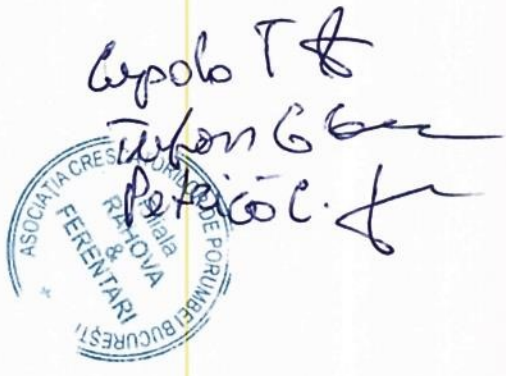 Cupolo T
Trifon G
Petrică C.
ASOCIAȚIA CRESCĂTORILOR DE PORUMBEI BUCUREȘTI
Filiala
RAHOVA
&
FERENTARI